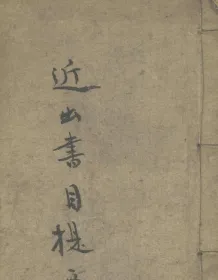 近出書目提